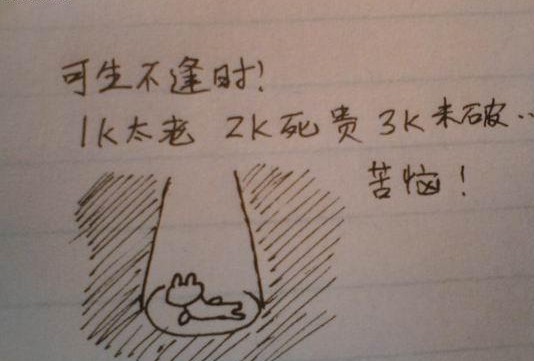 可生不逢时!
1K太老 2K死贵 3K未破..
苦恼!